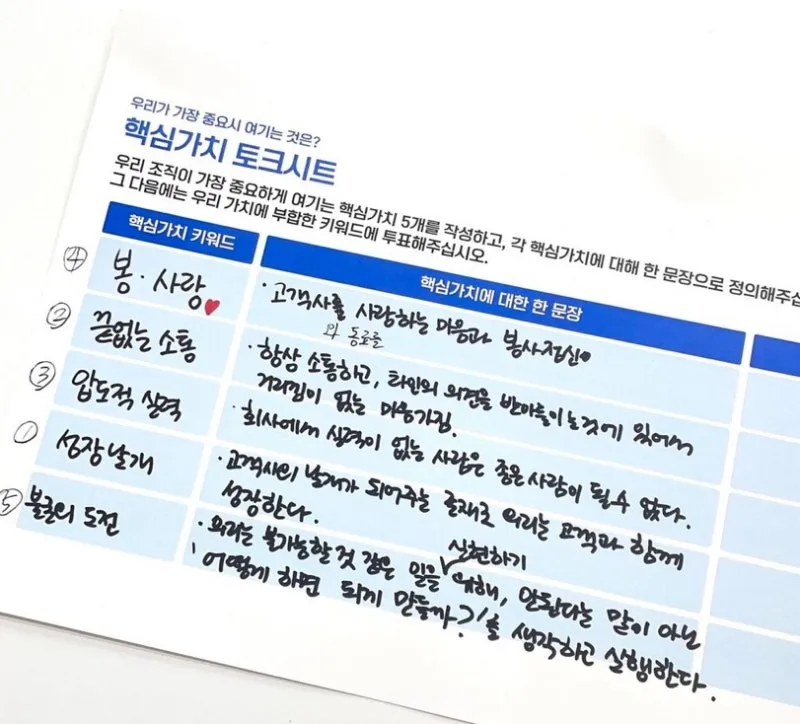 우리가 가장 중요시 여기는 것은?
핵심가치 토크시트
우리 조직이 가장 중요하게 여기는 핵심가치 5개를 작성하고, 각 핵심가치에 대해 한 문장으로 정의해주십
그 다음에는 우리 가치에 부합한 키워드에 투표해주십시오.
핵심가치 키워드
핵심가치에 대한 한 문장
④ 봉·사랑♥
· 고객사를 사랑하는 마음과 봉사정신
와 동료를
② 끝없는 소통
· 항상 소통하고, 타인의 의견을 받아들이는것에 있어서
거리낌이 없는 마음가짐.
③ 압도적 실력
· 회사에서 실력이 없는 사람은 좋은 사람이 될 수 없다.
① 성장날개
· 고객사의 날개가 되어주는 존재로 우리는 고객과 함께
성장한다.
⑤ 불굴의 도전
실현하기
· 우리는 불가능할 것 같은 일을 ∨ 위해, 안된다는 말이 아닌
'어떻게 하면 되게 만들까?'를 생각하고 실행한다.